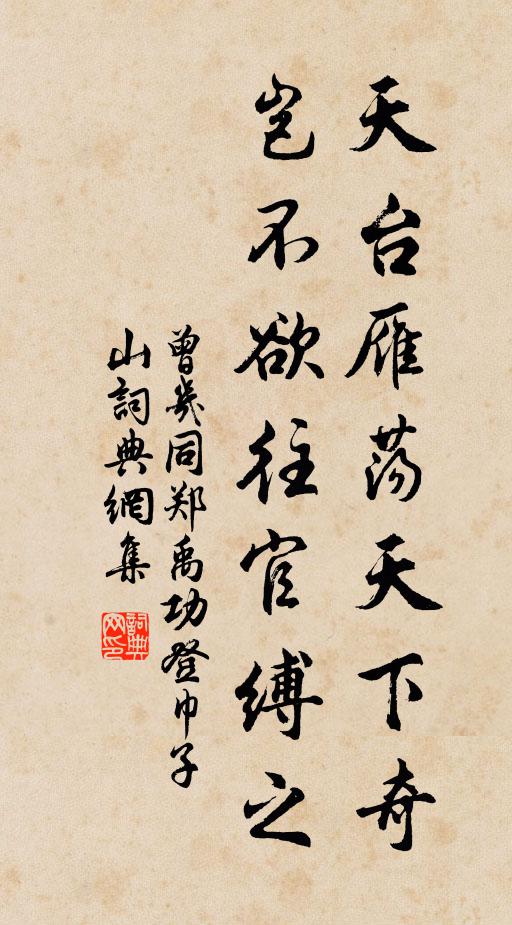 天台雁荡天下奇
岂不欲往官缚之
曾幾同郑禹功登巾子
山詞典網集
詞典网印